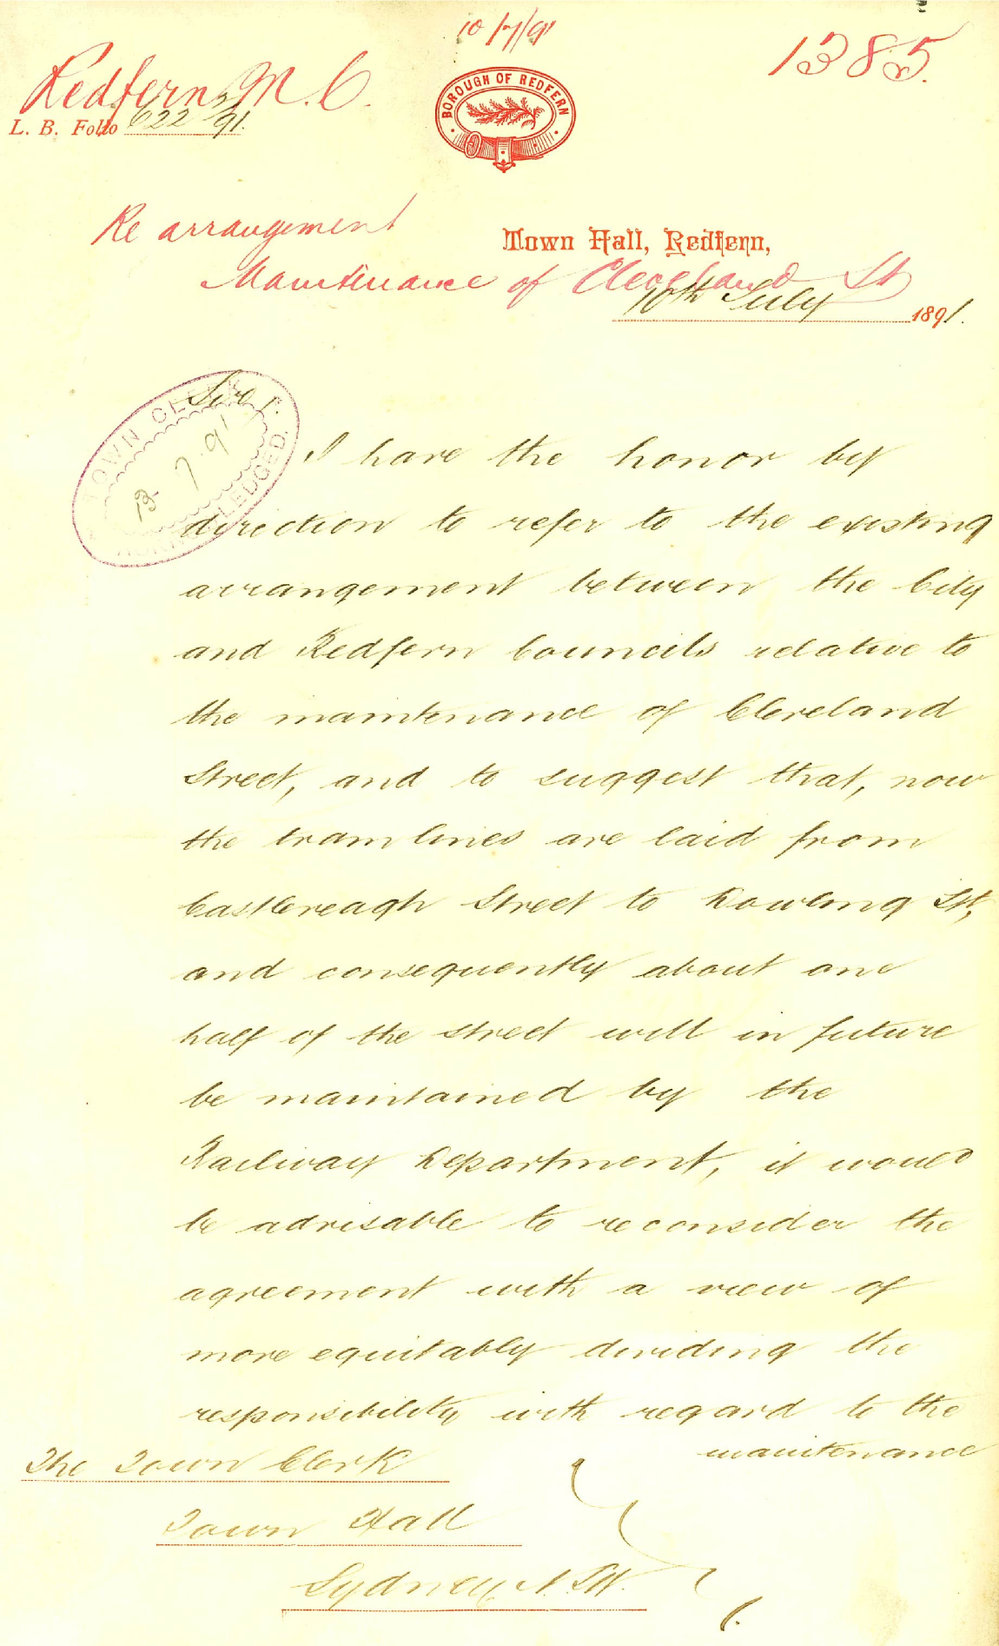 10/7/91
1385.
Redfern M. C.
BOROUGH OF REDFERN
L. B. Folio 622/91.
Re arrangement
Town Hall, Redfern,
Maintenance of Cleveland St
10th July 1891.
Sir,
TOWN CLERK
13 7 91
I have the honor by
direction to refer to the existing
arrangement between the City
and Redfern Councils relative to
the maintenance of Cleveland
Street, and to suggest that, now
the tram lines are laid from
Castlereagh Street to Dowling St,
and consequently about one
half of the street will in future
be maintained by the
Railway Department, it would
be advisable to reconsider the
agreement with a view of
more equitably dividing the
responsibility with regard to the
maintenance
The Town Clerk
Town Hall
Sydney N.S.W.